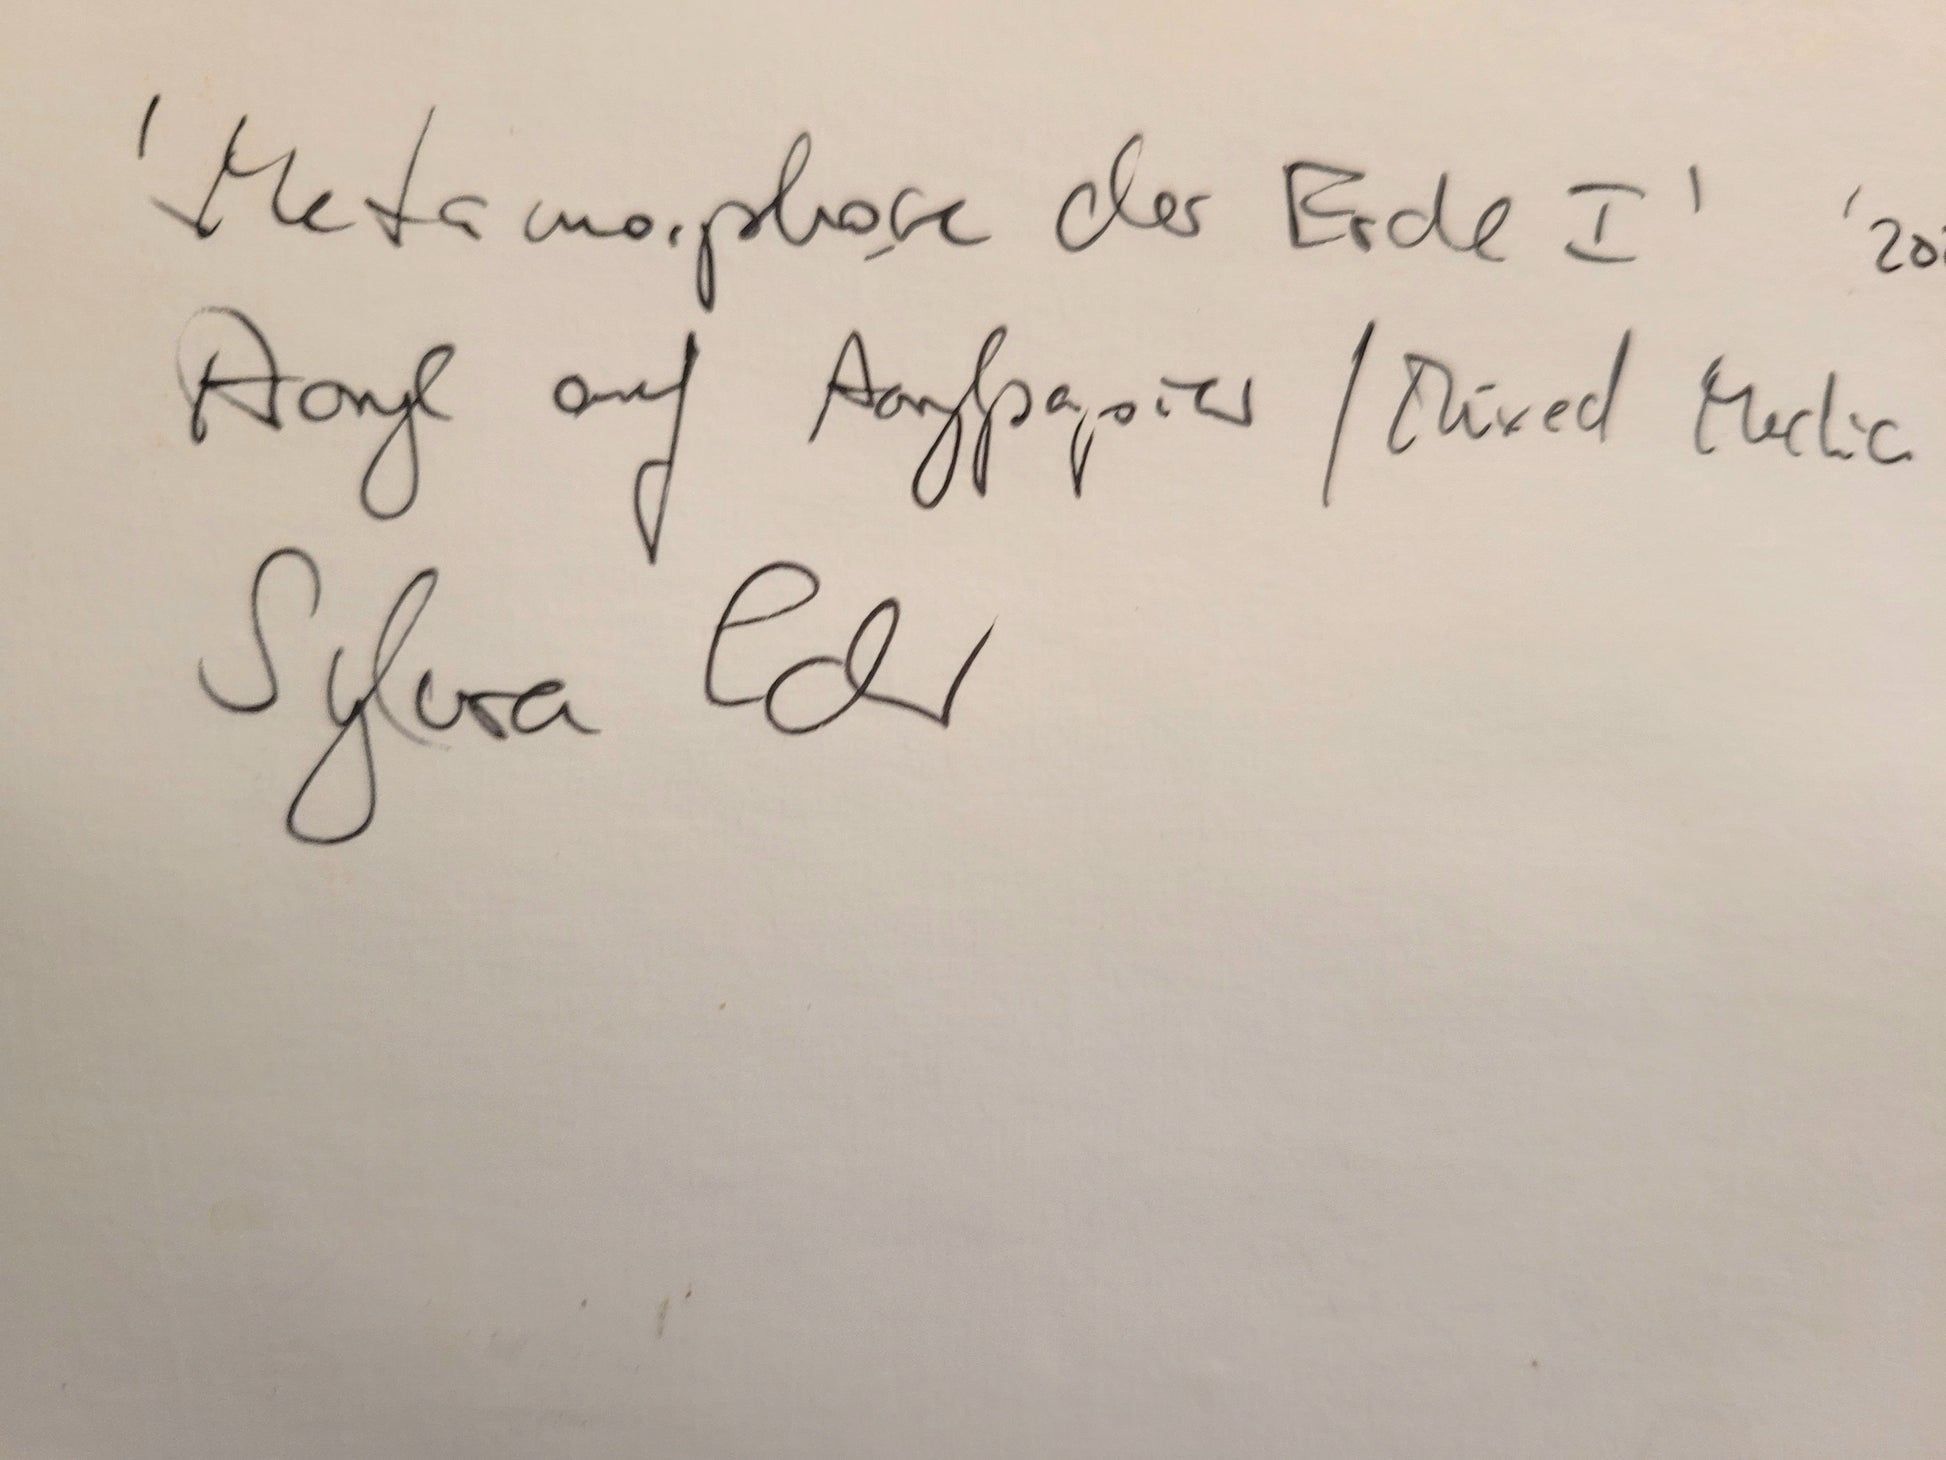 'Metamorphose der Erde I' '202
Acryl auf Acrylpapier / Mixed Media
Sylvia